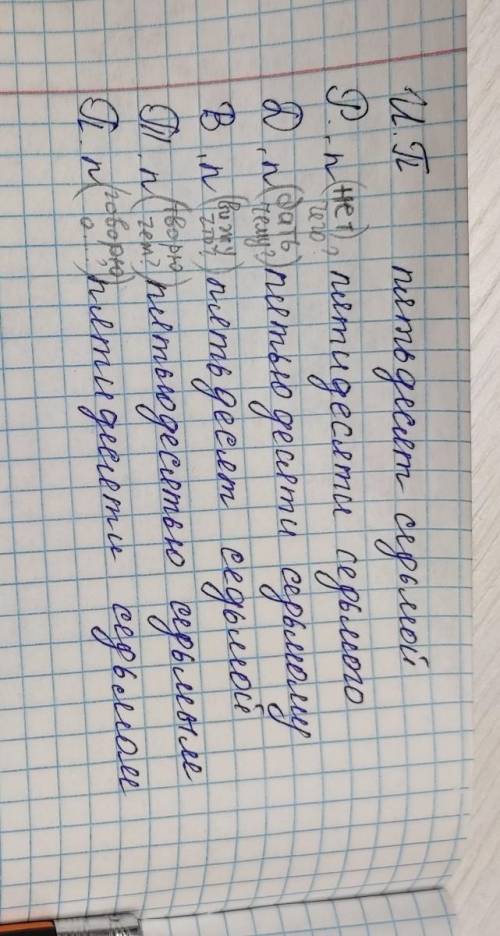 И.П пятьдесят седьмой
Р.п (нет чего?) пятидесяти седьмого
Д.п (дать чему?) пятьюдесяти седьмому
В.п (вижу что?) пятьдесят седьмой
Т.п (творю чем?) пятьюдесятью седьмым
П.п (говорю о...?) пятидесяти седьмом